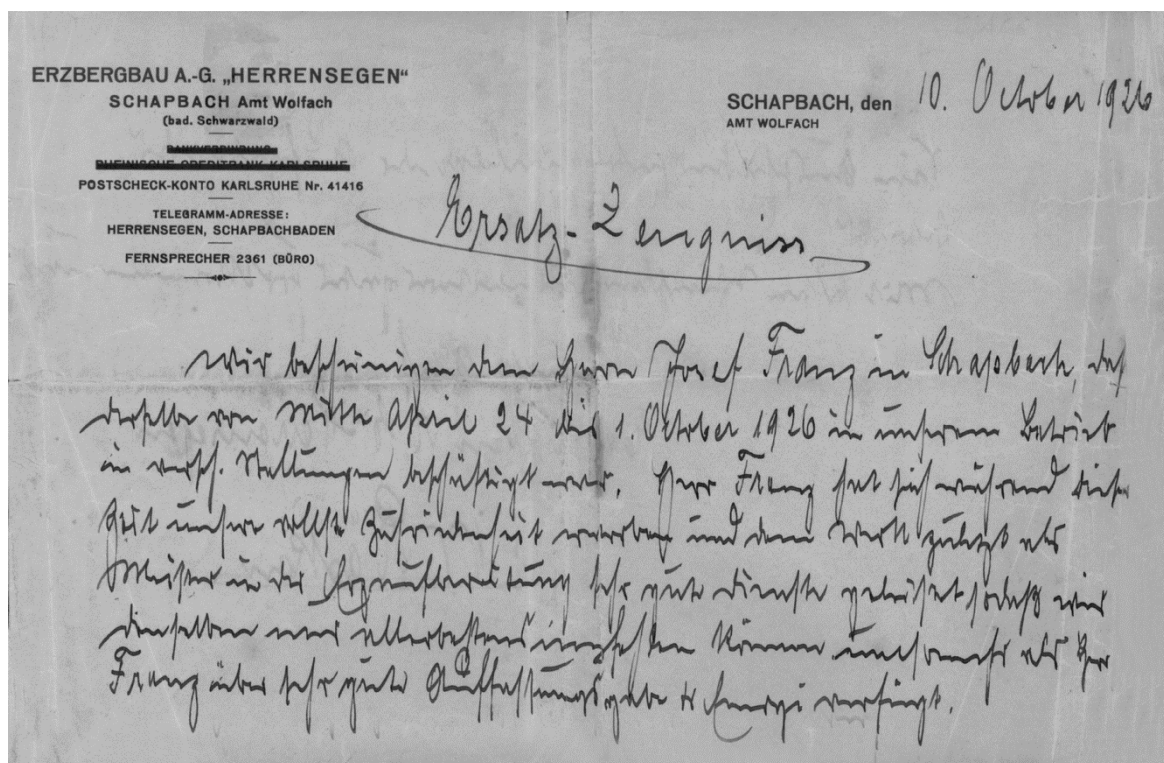 ERZBERGBAU A.-G. „HERRENSEGEN“
SCHAPBACH Amt Wolfach
(bad. Schwarzwald)
BANKVERBINDUNG:
RHEINISCHE CREDITBANK KARLSRUHE
POSTSCHECK-KONTO KARLSRUHE Nr. 41416
TELEGRAMM-ADRESSE:
HERRENSEGEN, SCHAPBACHBADEN
FERNSPRECHER 2361 (BÜRO)
SCHAPBACH, den 10. October 1926
AMT WOLFACH
Ersatz-Zeugniss
Wir bescheinigen dem Herrn Josef Franz in Schapbach, daß
derselbe von Mitte April 24 bis 1. October 1926 in unserem Betrieb
in versch. Stellungen beschäftigt war. Herr Franz hat sich während dieser
Zeit unsere vollste Zufriedenheit erworben und dem Werk zuletzt als
Meister in der Erzaufbereitung sehr gute Dienste geleistet sodaß wir
denselben nur allerbestens empfehlen können umsomehr als Herr
Franz über sehr gute Auffassungsgabe & Energi verfügt.